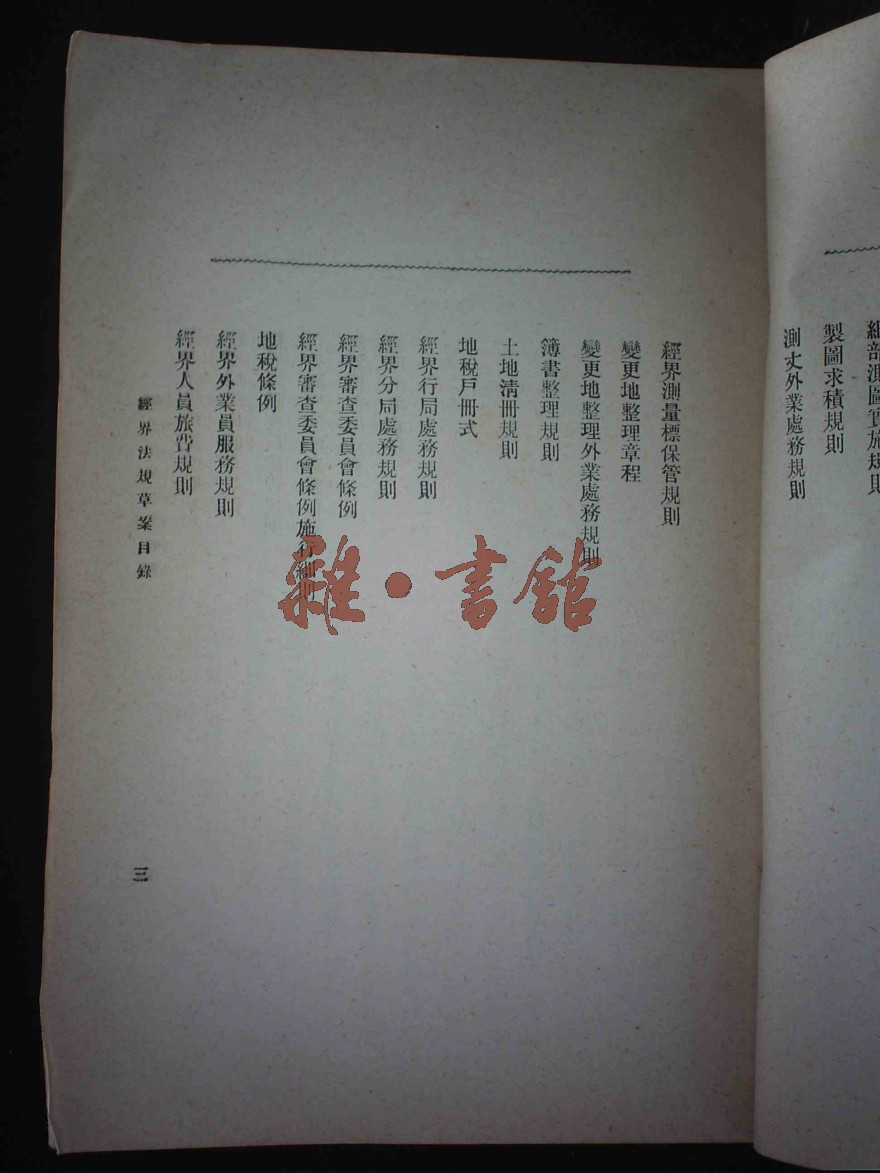 細部測圖實施規則
製圖求積規則
測丈外業處務規則
經界測量標保管規則
變更地整理章程
變更地整理外業處務規則
簿書整理規則
土地清冊規則
地稅戶冊式
經界行局處務規則
經界分局處務規則
經界審查委員會條例
經界審查委員會條例施行細則
地稅條例
經界外業員服務規則
經界人員旅費規則
經界法規草案目錄
三
雜·書館